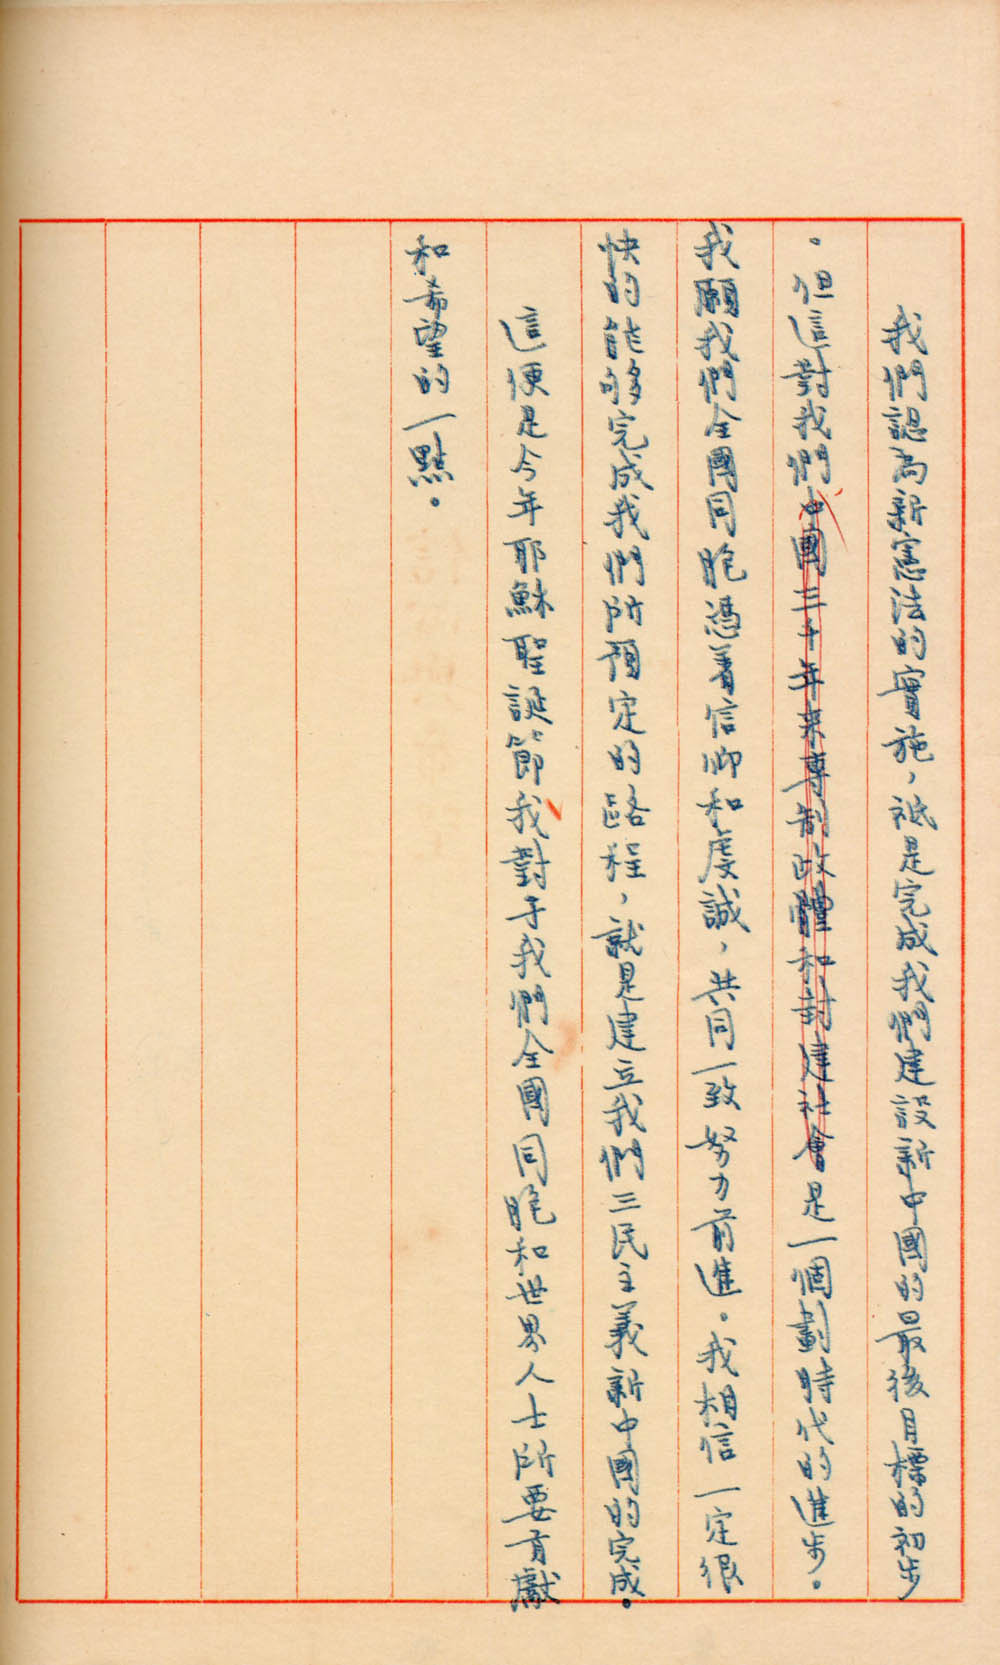 我們認為新憲法的實施，祇是完成我們建設新中國的最後目標的初步
。但這對我們中國三千年來專制政體和封建社會是一個劃時代的進步。
我願我們全國同胞憑着信仰和虔誠，共同一致努力前進。我相信一定很
快的能够完成我們所預定的路程，就是建立我們三民主義新中國的完成。
這便是今年耶穌聖誕節我對于我們全國同胞和世界人士所要貢獻
和希望的一點。